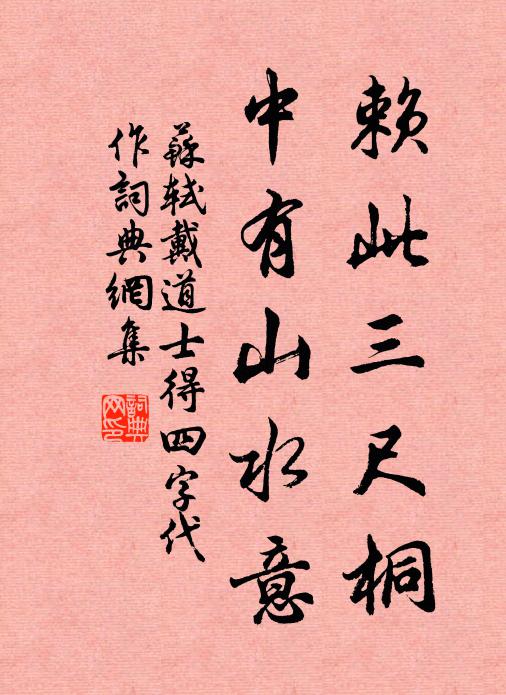 賴此三尺桐
中有山水意
蘇軾戴道士得四字代
作詞典網集
詞典
网印